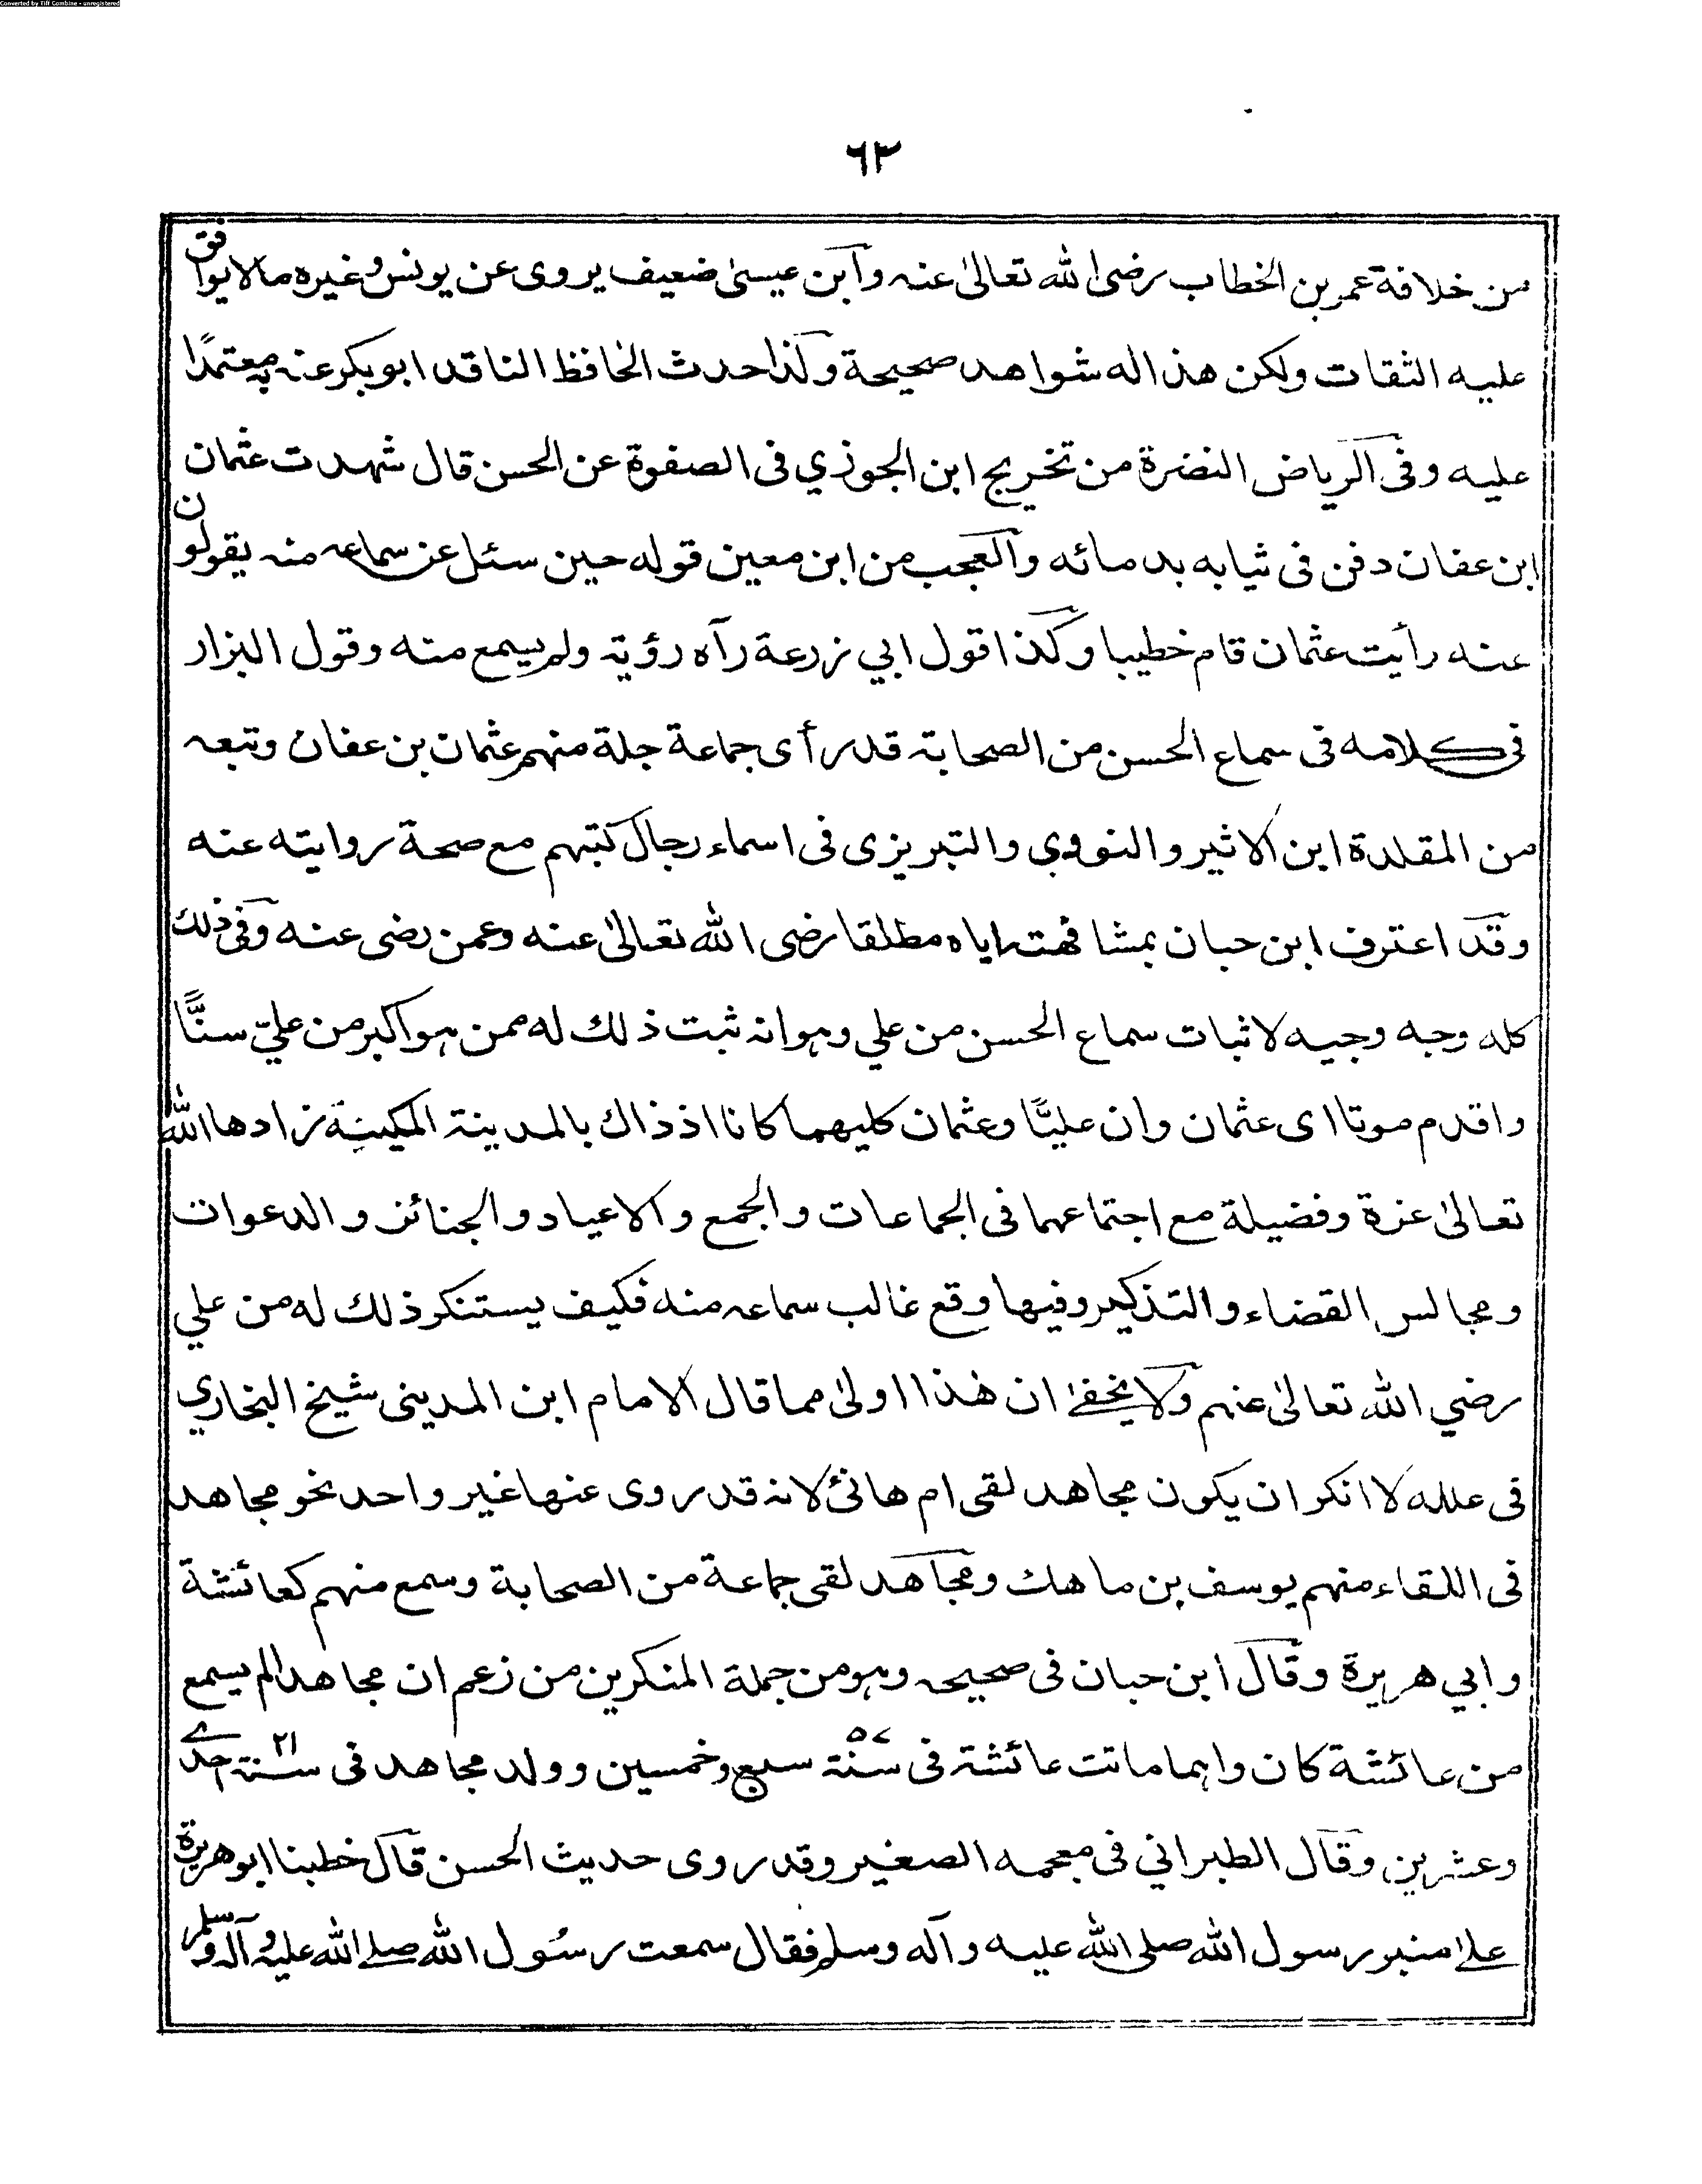 Converted by Tiff Combine - unregistered
٦٣
من خلافة عمر بن الخطاب رضى الله تعالىٰ عنه وابن عيسىٰ ضعيف يروى عن يونس وغيره مالا يوافق
عليه الثقات ولكن هذا له شواهد صحيحة ولذا حدث الحافظ الناقد ابو بكر عنه به معتمدًا
عليه وفى الرياض النضرة من تخريج ابن الجوزي فى الصفوة عن الحسن قال شهدت عثمان
ابن عفان دفن فى ثيابه بدمائه والعجب من ابن معين قوله حين سئل عن سماعه منه يقولون
عنه رأيت عثمان قام خطيبا وكذا قول ابي زرعة رآه رؤية ولم يسمع منه وقول البزار
فى كلامه فى سماع الحسن من الصحابة قد رأى جماعة جلة منهم عثمان بن عفان وتبعه
من المقلدة ابن الاثير والنووي والتبريزى فى اسماء رجال كتبهم مع صحة روايته عنه
وقد اعترف ابن حبان بمشافهته اياه مطلقا رضى الله تعالىٰ عنه وعمن رضى عنه وفى ذلك
كله وجه وجيه لاثبات سماع الحسن من علي وهو انه ثبت ذلك له ممن هو اكبر من عليّ سنًّا
واقدم موتا اى عثمان وان عليًّا وعثمان كليهما كانا اذ ذاك بالمدينة المكينة زادها الله
تعالىٰ عزة وفضيلة مع اجتماعهما فى الجماعات والجمع والاعياد والجنائز والدعوات
ومجالس القضاء والتذكير وفيها وقع غالب سماعه منه فكيف يستنكر ذلك له من علي
رضي الله تعالىٰ عنهم ولا يخفىٰ ان هٰذا اولىٰ مما قال الامام ابن المدينى شيخ البخاري
فى علله لا انكر ان يكون مجاهد لقى ام هانئ لانه قد روى عنها غير واحد نحو مجاهد
فى اللقاء منهم يوسف بن ماهك ومجاهد لقى جماعة من الصحابة وسمع منهم كعائشة
وابي هريرة وقال ابن حبان فى صحيحه وهو من جملة المنكرين من زعم ان مجاهدا لم يسمع
من عائشة كان واهما ماتت عائشة فى سنة ٥٧ سبع وخمسين وولد مجاهد فى سنة ٢١ احدے
وعشرين وقال الطبراني فى معجمه الصغير وقد روى حديث الحسن قال خطبنا ابو هريرة
علىٰ منبر رسول الله صلى الله عليه وآله وسلم فقال سمعت رسُول الله صلے الله عليه وآله وسلم